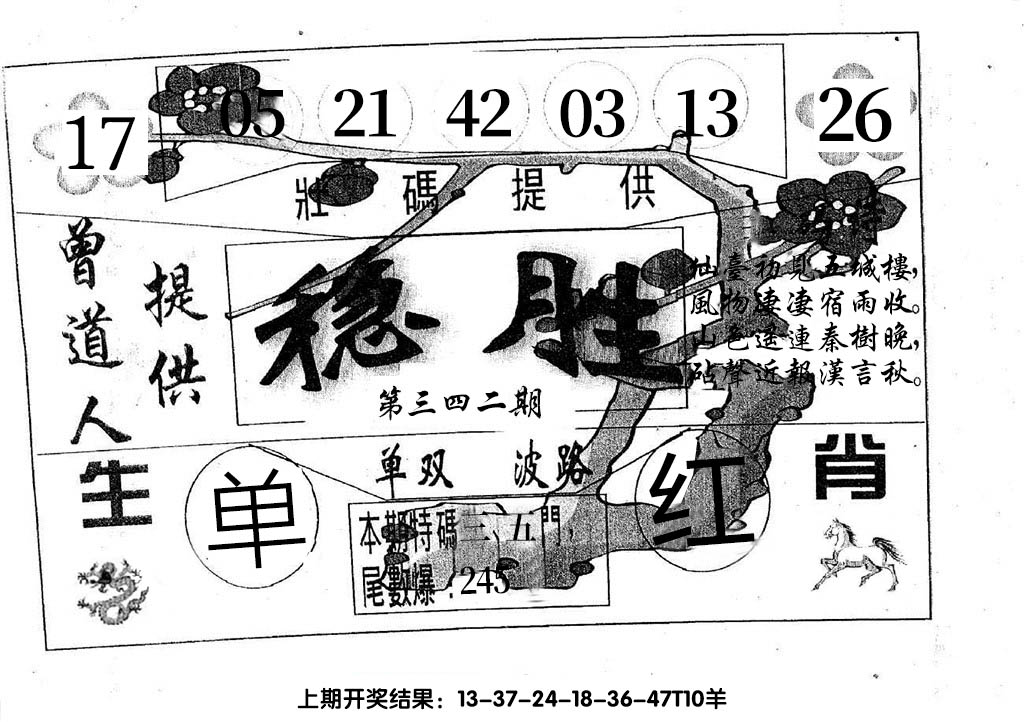 17 05 21 42 03 13 26
壯碼提供
曾道人
提供
稳胜
第三四二期
仙臺初見五城樓，
風物淒淒宿雨收。
山色遥連秦樹晚，
砧聲近報漢言秋。
单双 波路
单 红
生肖
本期特碼三、五門，
尾數爆:245
上期开奖结果：13-37-24-18-36-47T10羊